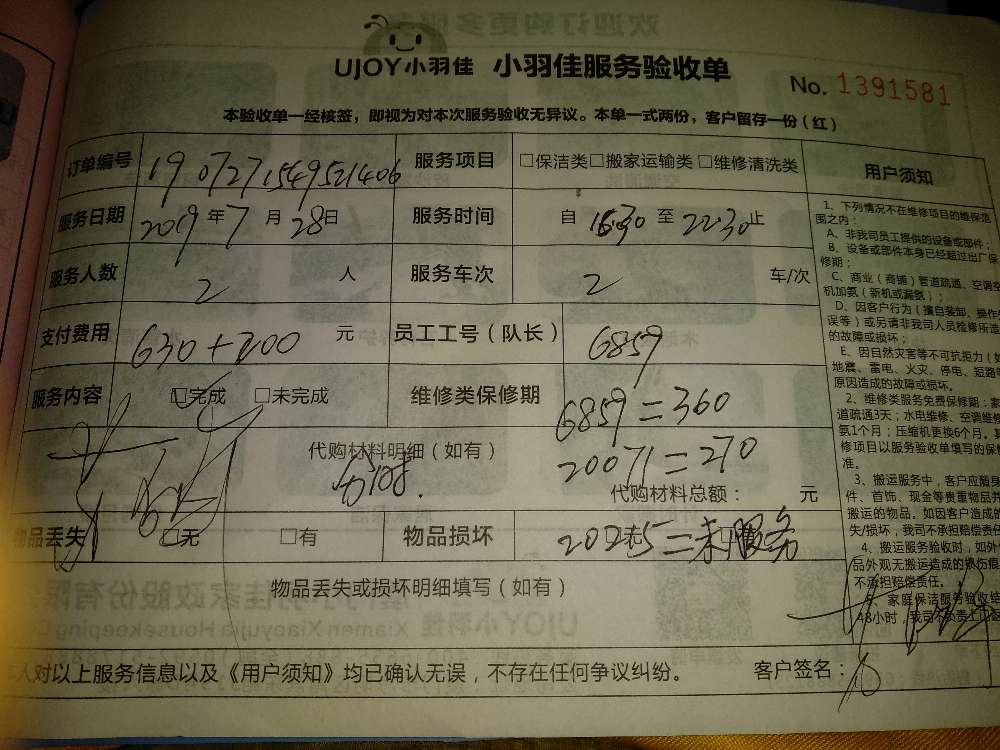 UJOY小羽佳 小羽佳服务验收单 No. 1391581
本验收单一经核签，即视为对本次服务验收无异议。本单一式两份，客户留存一份（红）
订单编号 190727154952140​6 服务项目 □保洁类□搬家运输类□维修清洗类 用户须知
服务日期 2019年7月28日 服务时间 自16:30至22:30止
服务人数 2 人 服务车次 2 车/次
支付费用 630+200 元 员工工号（队长） 6859
服务内容 □完成 □未完成 维修类保修期
6859=360
代购材料明细（如有）
20071=270
代购材料总额： 元
物品丢失 □无 □有 物品损坏
=未服务
物品丢失或损坏明细填写（如有）
人对以上服务信息以及《用户须知》均已确认无误，不存在任何争议纠纷。 客户签名：
1、下列情况不在维修项目的维保范
围之内：
A、非我司员工提供的设备或部件；
B、设备或部件本身已经超过出厂保
修期；
C、商业（商铺）管道疏通、空调空
机加氨（新机或漏氨）；
D、因客户行为（擅自装卸、操作
误等）或另请非我司人员检修所造
的故障或损坏；
E、因自然灾害等不可抗拒力（如
地震、雷电、火灾、停电、短路
原因造成的故障或损坏。
2、维修类服务免费保修期：家
道疏通3天；水电维修、空调维修
氨1个月；压缩机更换6个月。其
修项目以服务验收单填写的保
准。
3、搬运服务中，客户应随身
件、首饰、现金等贵重物品并
搬运的物品。如因客户造成的
失/损坏，我司不承担赔偿责任
4、搬运服务验收时，如外
品外观无搬运造成的损伤痕
不承担赔偿责任。
家庭保洁服务验收结
48小时，我司不负责上门